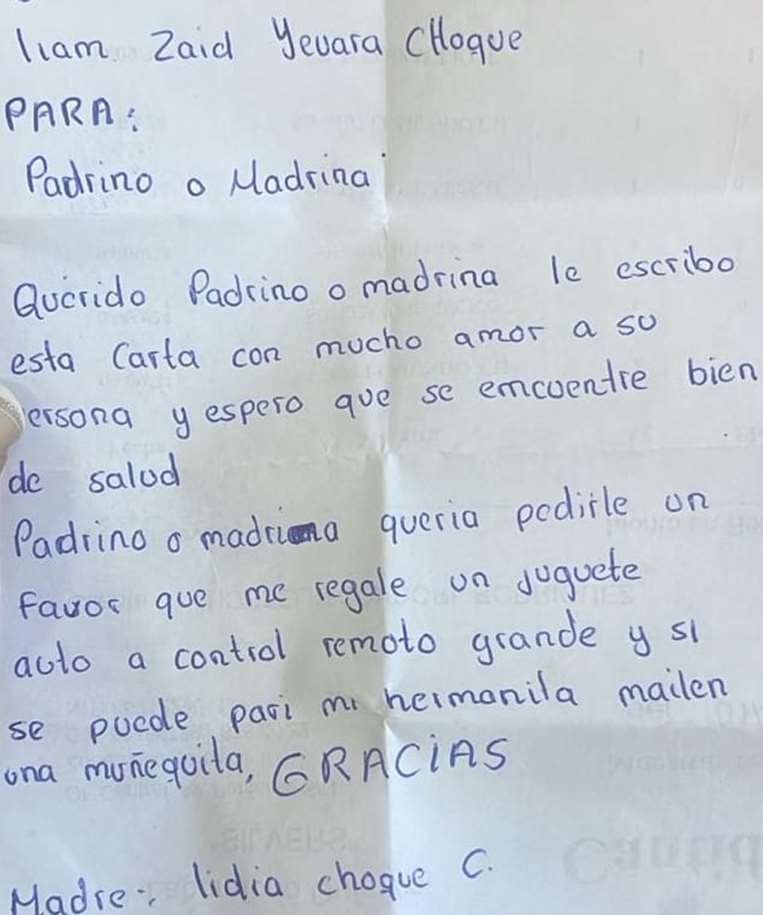 liam Zaid Yevara CHoque
PARA:
Padrino o Madrina
Querido Padrino o madrina le escribo
esta Carta con mucho amor a su
ersona y espero que se emcuentre bien
de salud
Padrino o madrina queria pedirle un
Favor que me regale un Juguete
auto a control remoto grande y si
se puede pari mi hermanita mailen
una muñequita, GRACiAS
Madre: lidia choque C.